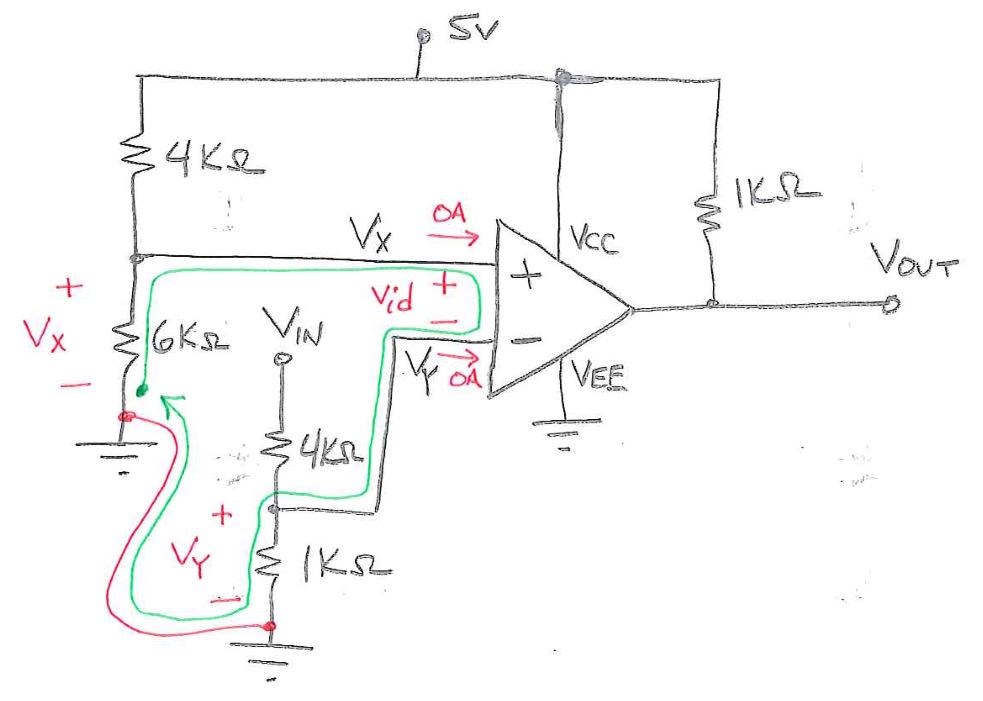 5V
4KΩ
1KΩ
VX
0A
VCC
VOUT
+
+
+
VX
6KΩ
VIN
Vid
−
−
−
VY
0A
VEE
4KΩ
+
VY
1KΩ
−